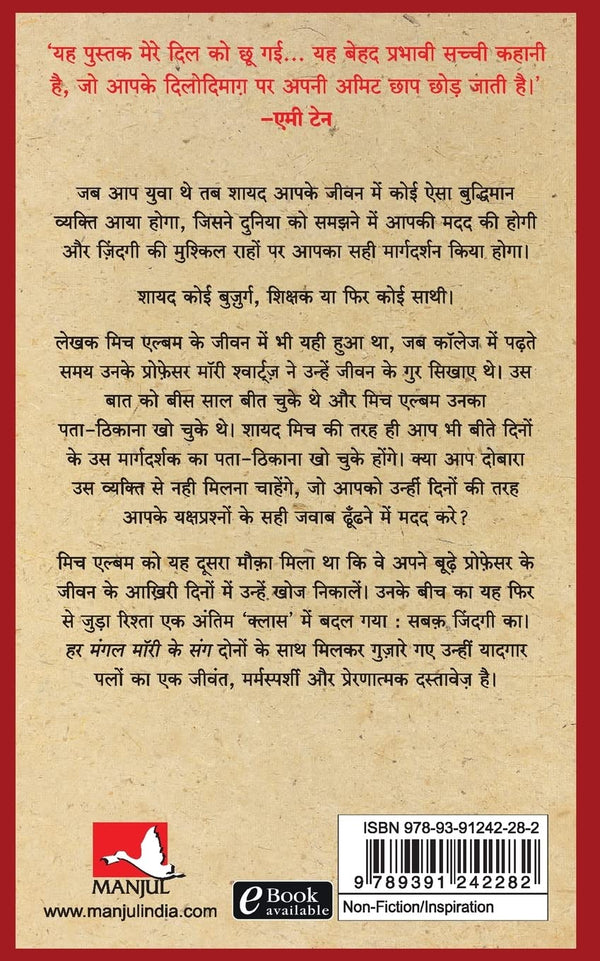 ‘यह पुस्तक मेरे दिल को छू गई... यह बेहद प्रभावी सच्ची कहानी
है, जो आपके दिलोदिमाग़ पर अपनी अमिट छाप छोड़ जाती है।’
–एमी टेन
जब आप युवा थे तब शायद आपके जीवन में कोई ऐसा बुद्धिमान
व्यक्ति आया होगा, जिसने दुनिया को समझने में आपकी मदद की होगी
और ज़िंदगी की मुश्किल राहों पर आपका सही मार्गदर्शन किया होगा।
शायद कोई बुज़ुर्ग, शिक्षक या फिर कोई साथी।
लेखक मिच एल्बम के जीवन में भी यही हुआ था, जब कॉलेज में पढ़ते
समय उनके प्रोफ़ेसर मॉरी श्वार्ट्ज़ ने उन्हें जीवन के गुर सिखाए थे। उस
बात को बीस साल बीत चुके थे और मिच एल्बम उनका
पता-ठिकाना खो चुके थे। शायद मिच की तरह ही आप भी बीते दिनों
के उस मार्गदर्शक का पता-ठिकाना खो चुके होंगे। क्या आप दोबारा
उस व्यक्ति से नही मिलना चाहेंगे, जो आपको उन्हीं दिनों की तरह
आपके यक्षप्रश्नों के सही जवाब ढूँढने में मदद करे?
मिच एल्बम को यह दूसरा मौक़ा मिला था कि वे अपने बूढ़े प्रोफ़ेसर के
जीवन के आख़िरी दिनों में उन्हें खोज निकालें। उनके बीच का यह फिर
से जुड़ा रिश्ता एक अंतिम ‘क्लास’ में बदल गया : सबक़ ज़िंदगी का।
हर मंगल मॉरी के संग दोनों के साथ मिलकर गुज़ारे गए उन्हीं यादगार
पलों का एक जीवंत, मर्मस्पर्शी और प्रेरणात्मक दस्तावेज़ है।
MANJUL
www.manjulindia.com
e Book
available
ISBN 978-93-91242-28-2
9 789391 242282
Non-Fiction/Inspiration